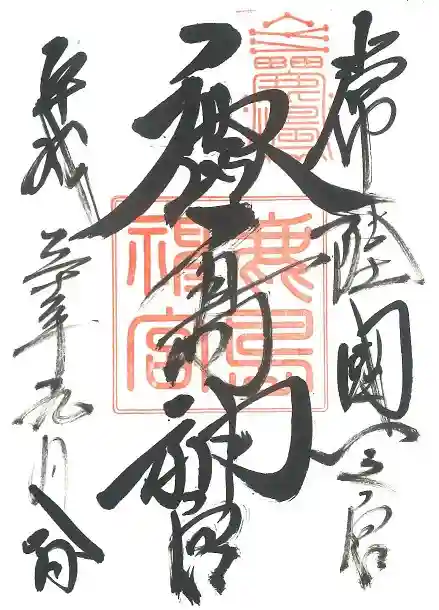 常陸國一之宮
鹿島神宮
鹿島神宮
平成三十年九月